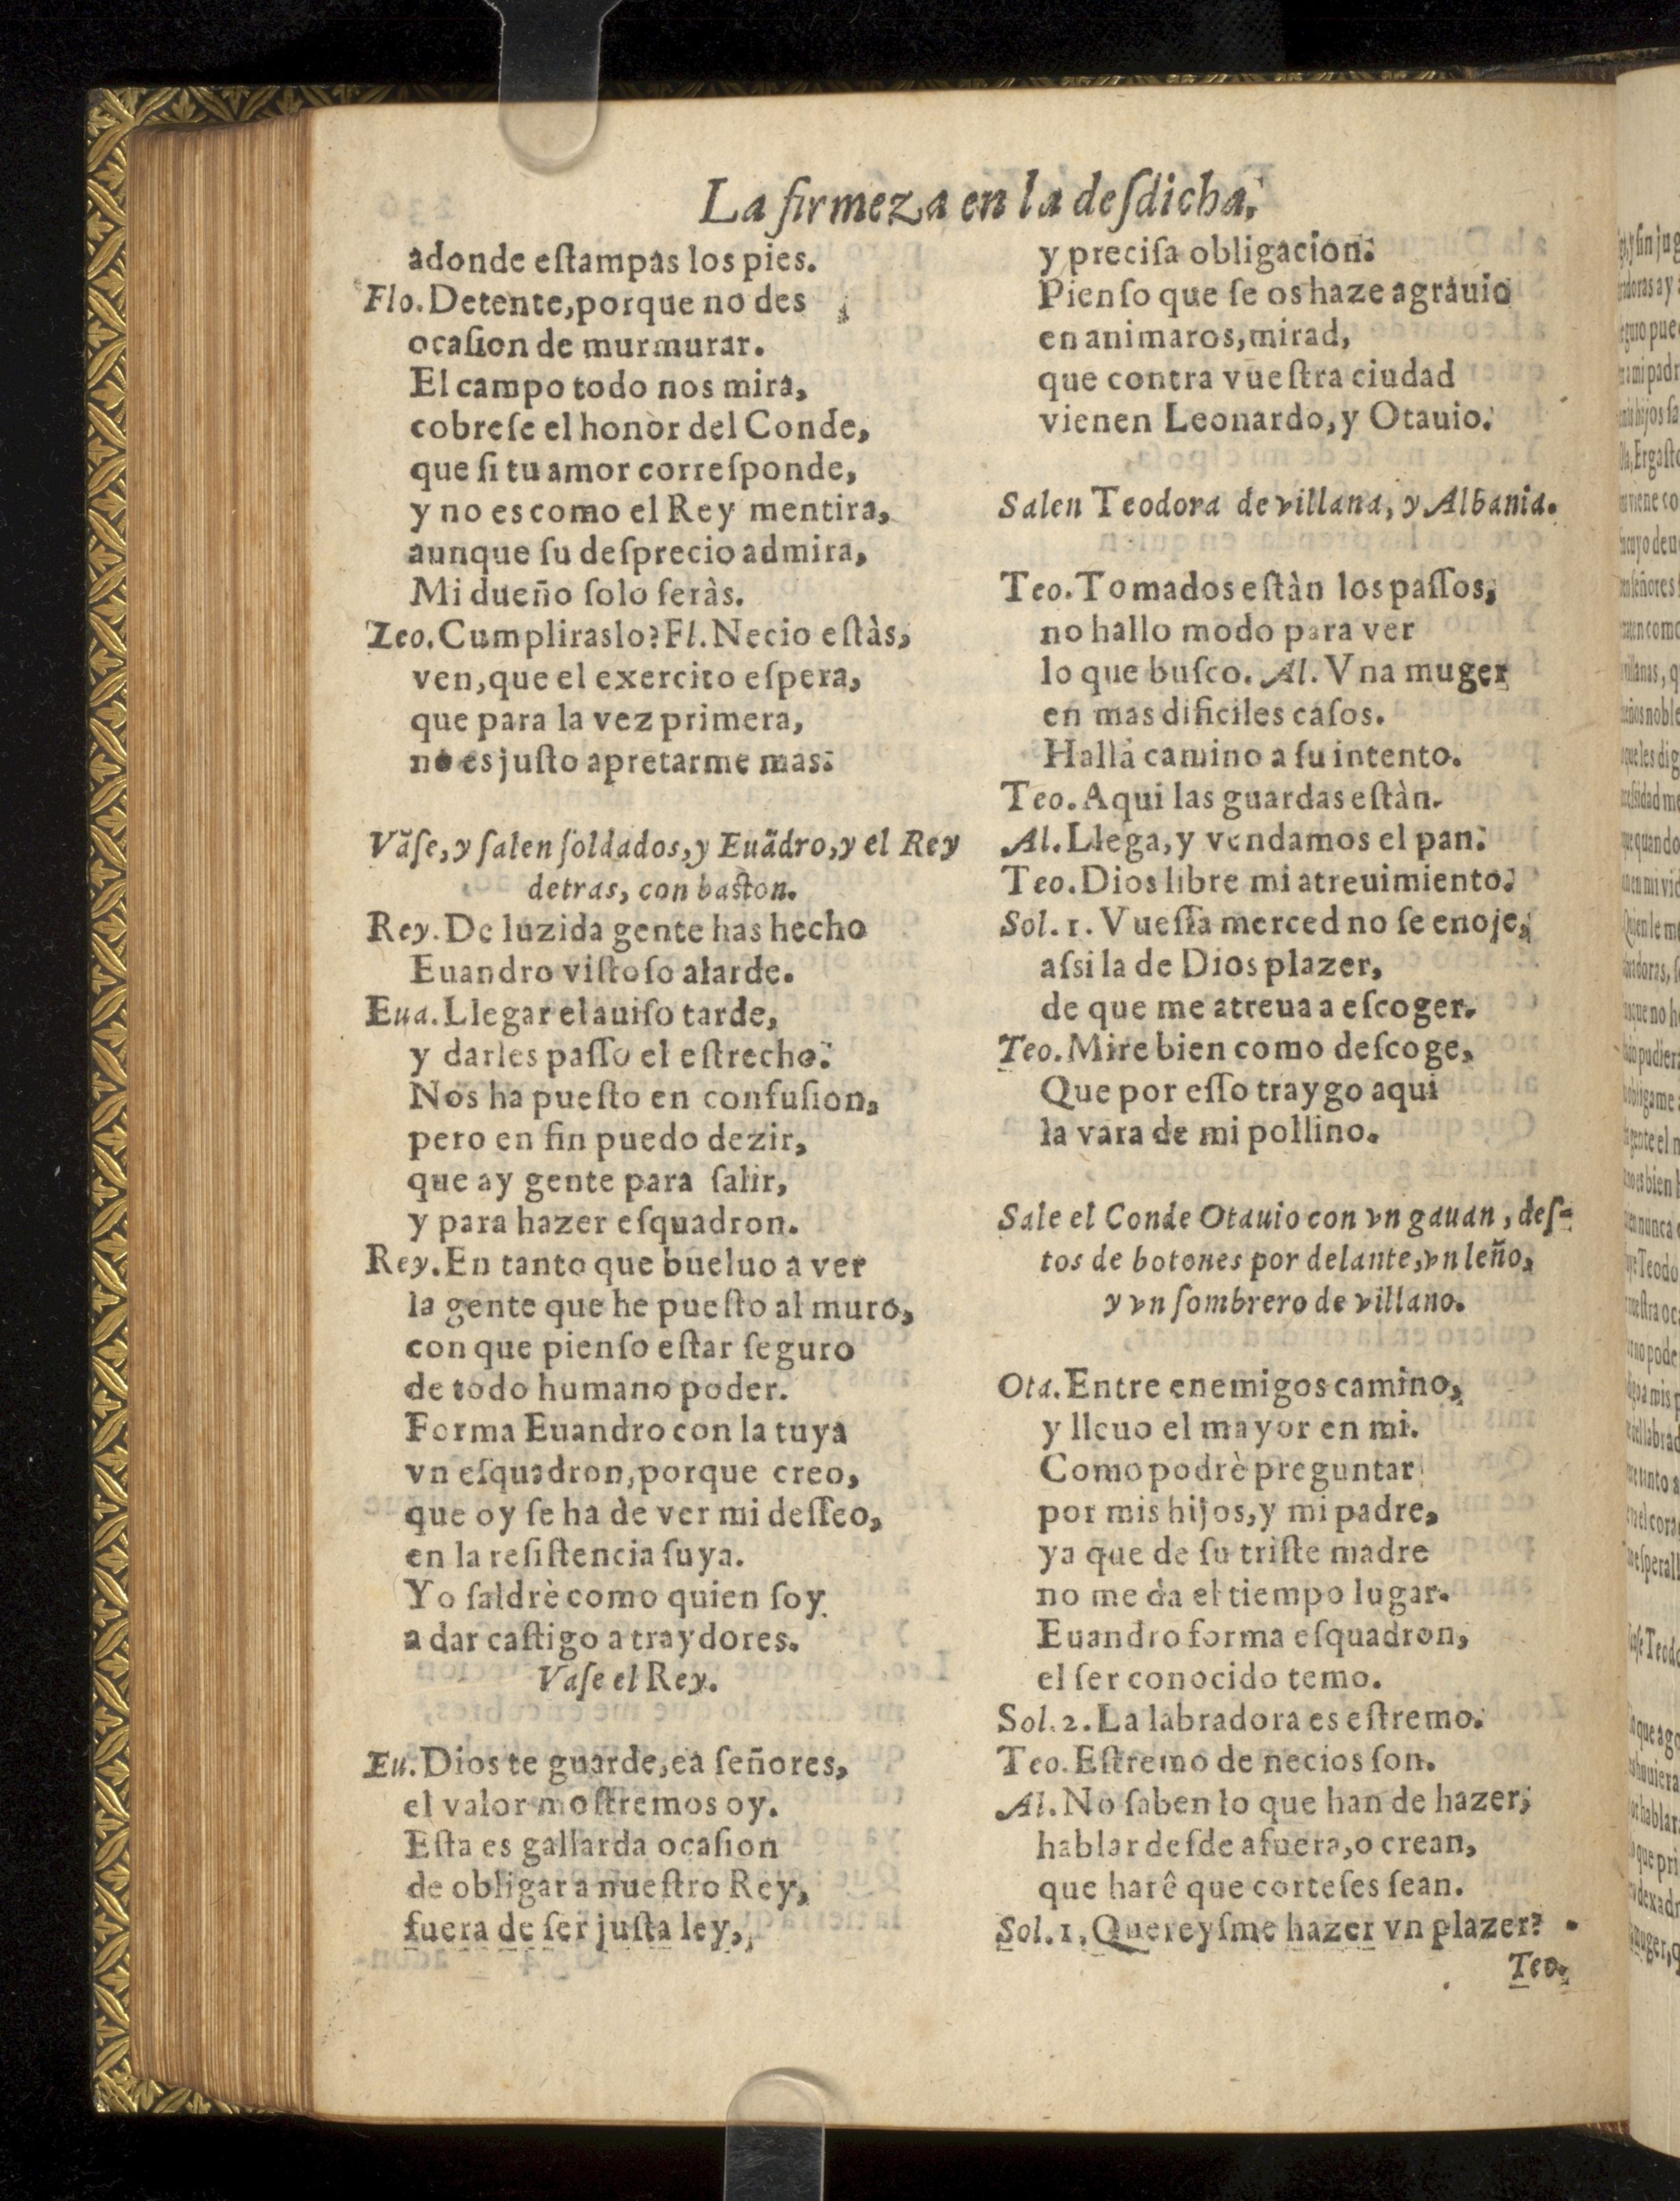 La firmeza en la desdicha.
adonde eſtampas los pies.
Flo. Detente, porque no des
ocaſion de murmurar.
El campo todo nos mira,
cobreſe el honor del Conde,
que ſi tu amor correſponde,
y no es como el Rey mentira,
aunque ſu deſprecio admira,
Mi dueño ſolo ſeràs.
Leo. Cumpliraslo? Fl. Necio eſtàs,
ven, que el exercito eſpera,
que para la vez primera,
no es juſto apretarme mas.
Vãſe, y ſalen ſoldados, y Euãdro, y el Rey
detras, con baſton.
Rey. De luzida gente has hecho
Euandro viſtoſo alarde.
Eua. Llegar el auiſo tarde,
y darles paſſo el eſtrecho.
Nos ha pueſto en confuſion,
pero en fin puedo dezir,
que ay gente para ſalir,
y para hazer eſquadron.
Rey. En tanto que bueluo a ver
la gente que he pueſto al muro,
con que pienſo eſtar ſeguro
de todo humano poder.
Forma Euandro con la tuya
vn eſquadron, porque creo,
que oy ſe ha de ver mi deſſeo,
en la reſiſtencia ſuya.
Yo ſaldrè como quien ſoy
a dar caſtigo a traydores.
Vaſe el Rey.
Eu. Dios te guarde, ea ſeñores,
el valor moſtremos oy.
Eſta es gallarda ocaſion
de obligar a nueſtro Rey,
fuera de ſer juſta ley,
y preciſa obligacion.
Pienſo que ſe os haze agrauio
en animaros, mirad,
que contra vueſtra ciudad
vienen Leonardo, y Otauio.
Salen Teodora de villana, y Albania.
Teo. Tomados eſtàn los paſſos,
no hallo modo para ver
lo que buſco. Al. Vna muger
en mas dificiles caſos.
Halla camino a ſu intento.
Teo. Aqui las guardas eſtàn.
Al. Llega, y vendamos el pan.
Teo. Dios libre mi atreuimiento.
Sol. 1. Vueſſa merced no ſe enoje,
aſsi la de Dios plazer,
de que me atreua a eſcoger.
Teo. Mire bien como deſcoge,
Que por eſſo traygo aqui
la vara de mi pollino.
Sale el Conde Otauio con vn gauan, deſ-
tos de botones por delante, vn leño,
y vn ſombrero de villano.
Ota. Entre enemigos camino,
y lleuo el mayor en mi.
Como podrè preguntar
por mis hijos, y mi padre,
ya que de ſu triſte madre
no me da el tiempo lugar.
Euandro forma eſquadron,
el ſer conocido temo.
Sol. 2. La labradora es eſtremo.
Teo. Eſtremo de necios ſon.
Al. No ſaben lo que han de hazer,
hablar deſde afuera, o crean,
que harê que corteſes ſean.
Sol. 1. Quereyſme hazer vn plazer?
Teo.